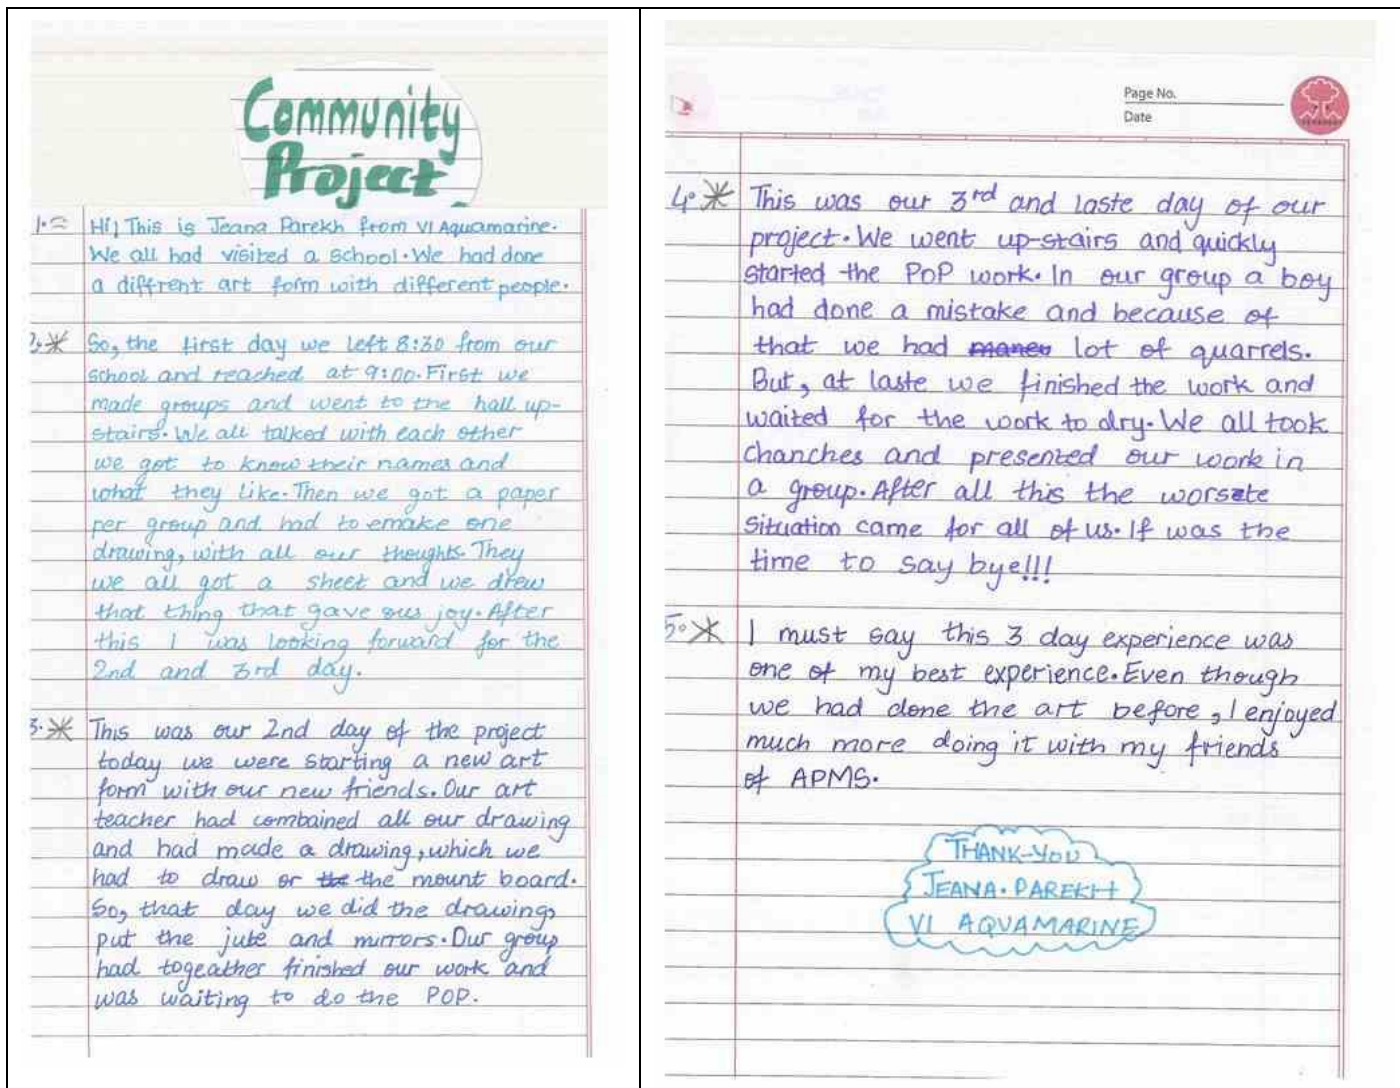 Community
Project
1.= Hi! This is Jeana Parekh from VI Aquamarine.
We all had visited a school. We had done
a diffrent art form with different people.
2.* So, the first day we left 8:30 from our
school and reached at 9:00. First we
made groups and went to the hall up-
stairs. We all talked with each other
we got to know their names and
what they like. Then we got a paper
per group and had to emake one
drawing, with all our thoughts. They
we all got a sheet and we drew
that thing that gave ous joy. After
this I was looking forward for the
2nd and 3rd day.
3.* This was our 2nd day of the project
today we were starting a new art
form with our new friends. Our art
teacher had combained all our drawing
and had made a drawing, which we
had to draw or the the mount board.
So, that day we did the drawing,
put the jute and mirrors. Our group
had togeather finished our work and
was waiting to do the POP.
Page No.
Date
4.* This was our 3rd and laste day of our
project. We went up-stairs and quickly
started the PoP work. In our group a boy
had done a mistake and because of
that we had lot of quarrels.
But, at laste we finished the work and
waited for the work to dry. We all took
chanches and presented our work in
a group. After all this the worsete
situation came for all of us. If was the
time to say bye!!!
5.* I must say this 3 day experience was
one of my best experience. Even though
we had done the art before, I enjoyed
much more doing it with my friends
of APMS.
THANK-YOU
JEANA. PAREKH
VI AQUAMARINE